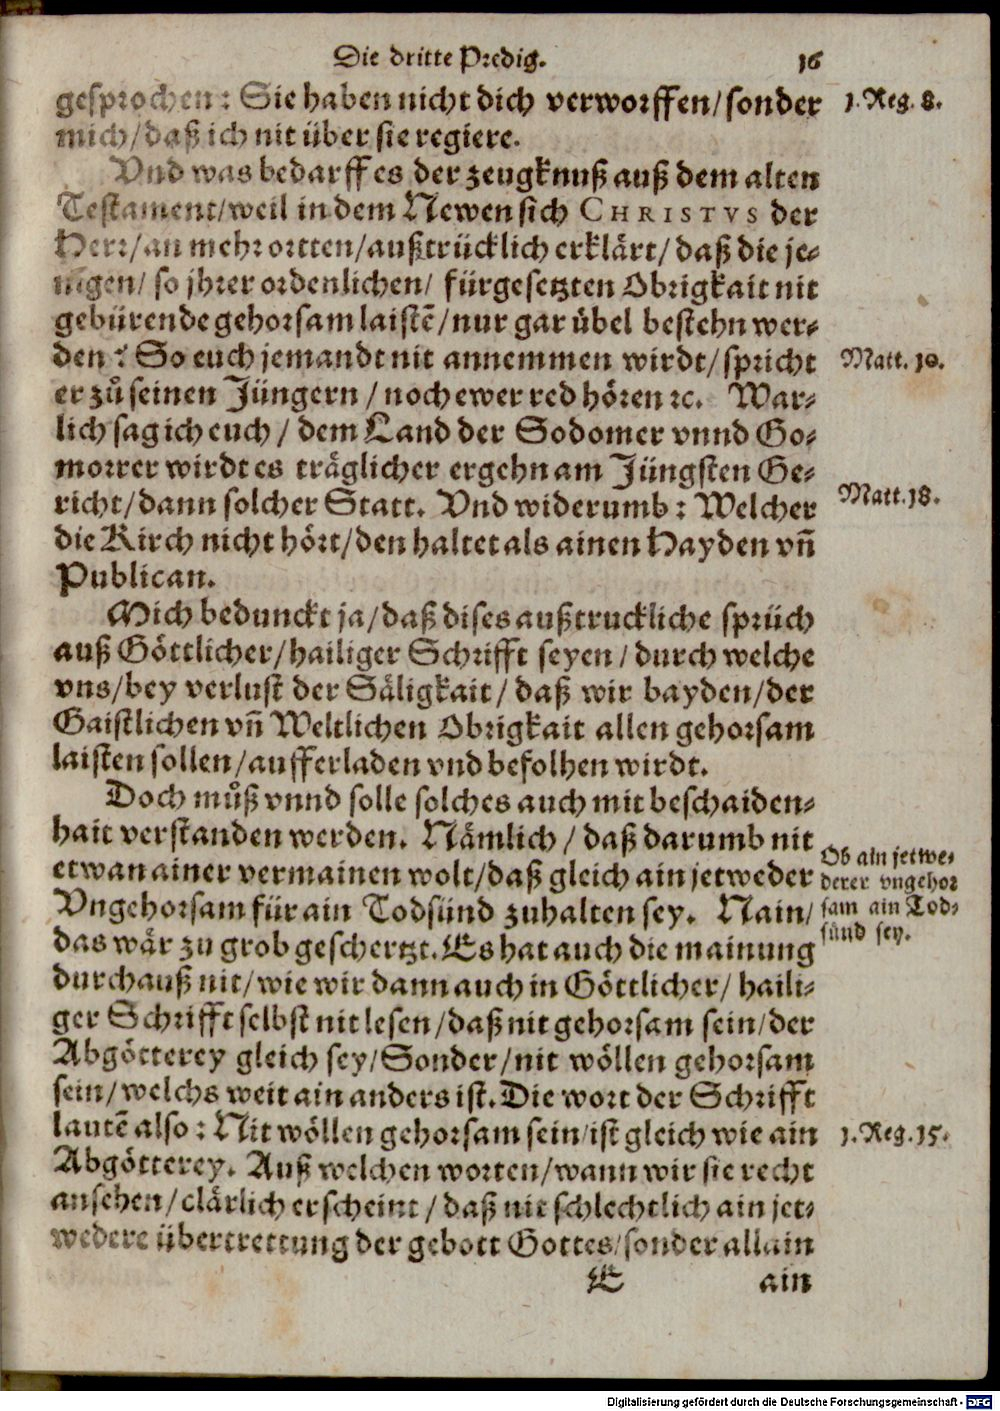 Die dritte Predig. 16
gesprochen: Sie haben nicht dich verworffen/sonder 1. Reg. 8.
mich/daß ich nit über sie regiere.
Vnd was bedarff es der zeugknuß auß dem alten
Testament/weil in dem Newen sich CHRISTVS der
Herr/an mehr ortten/außtrücklich erklärt/daß die je-
nigen/ so jhrer ordenlichen/ fürgesetzten Obrigkait nit
gebürende gehorsam laistẽ/nur gar übel bestehn wer-
den: So euch jemandt nit annemmen wirdt/spricht Matt. 10.
er zů seinen Jüngern / noch ewer red hören ꝛc. War-
lich sag ich euch / dem Land der Sodomer vnnd Go-
morrer wirdt es träglicher ergehn am Jüngsten Ge-
richt/dann solcher Statt. Vnd widerumb: Welcher Matt. 18.
die Kirch nicht hört/den haltet als ainen Hayden vñ
Publican.
Mich bedunckt ja/daß dises außtruckliche sprüch
auß Göttlicher/hailiger Schrifft seyen/durch welche
vns/bey verlust der Säligkait/ daß wir bayden/der
Gaistlichen vñ Weltlichen Obrigkait allen gehorsam
laisten sollen/aufferladen vnd befolhen wirdt.
Doch můß vnnd solle solches auch mit beschaiden-
hait verstanden werden. Nämlich / daß darumb nit
etwan ainer vermainen wolt/daß gleich ain jetweder
Vngehorsam für ain Todsünd zuhalten sey. Nain/
Ob ain jetwe-
derer vngehor
sam ain Tod-
sünd sey.
das wär zu grob geschertzt. Es hat auch die mainung
durchauß nit/wie wir dann auch in Göttlicher/ haili-
ger Schrifft selbst nit lesen/daß nit gehorsam sein/der
Abgötterey gleich sey/Sonder/nit wöllen gehorsam
sein/welchs weit ain anders ist. Die wort der Schrifft
lautẽ also: Nit wöllen gehorsam sein/ist gleich wie ain 1. Reg. 15.
Abgötterey. Auß welchen worten/wann wir sie recht
ansehen/clärlich erscheint/daß nit schlechtlich ain jet-
wedere übertrettung der gebott Gottes/sonder allain
E ain
Digitalisierung gefördert durch die Deutsche Forschungsgemeinschaft - DFG